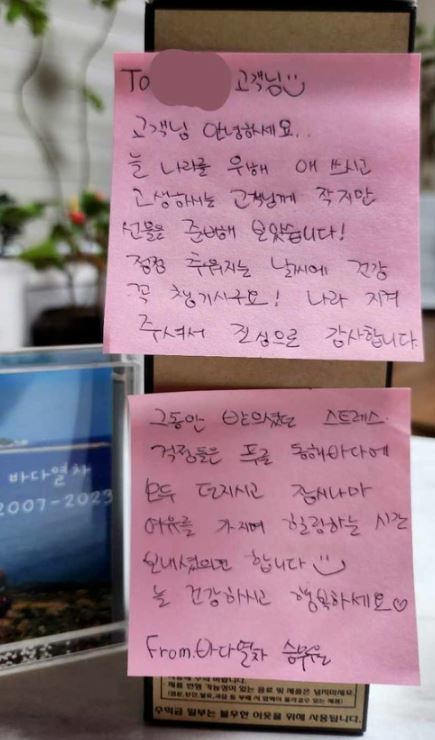 To 고객님
고객님 안녕하세요..
늘 나라를 위해 애 쓰시고
고생하시는 고객님께 작지만
선물을 준비해 보았습니다!
점점 추워지는 날씨에 건강
꼭 챙기시구요! 나라 지켜
주셔서 진심으로 감사합니다
그동안 받으셨던 스트레스.
걱정들은 푸른 동해바다에
모두 던지시고 잠시나마
여유를 가지며 힐링하는 시간
보내셨으면 합니다
늘 건강하시고 행복하세요♡
From.바다열차 승무원
바다열차
2007-2023
제품 반품 가능성이 있는 음료 및 제품은 넘기지마세요.
수익금 일부는 불우한 이웃을 위해 사용됩니다.